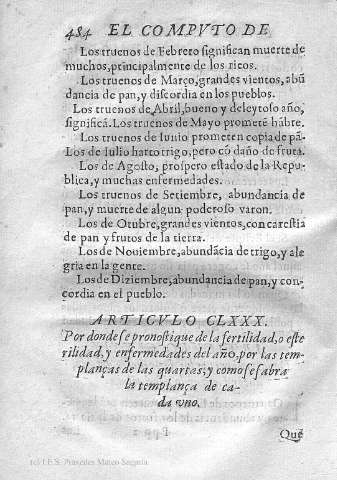 484 EL COMPVTO DE
Los truenos de Febrero significan muerte de
muchos, principalmente de los ricos.
Los truenos de Março, grandes vientos, abũ
dancia de pan, y discordia en los pueblos.
Los truenos de Abril, bueno y deleytoso año,
significã. Los truenos de Mayo prometẽ hãbre.
Los truenos de Iunio prometen copia de pã.
Los de Iulio harto trigo, pero cõ daño de fruta.
Los de Agosto, prospero estado de la Repu
blica, y muchas enfermedades.
Los truenos de Setiembre, abundancia de
pan, y muerte de algun poderoso varon.
Los de Otubre, grandes vientos, con carestia
de pan y frutos de la tierra.
Los de Nouiembre, abundãcia de trigo, y ale
gria en la gente.
Los de Diziembre, abundancia de pan, y con
cordia en el pueblo.
ARTICVLO CLXXX.
Por donde se pronostique de la fertilidad, o este
rilidad, y enfermedades del año, por las tem-
planças de las quartas; y como se sabra
la templança de ca-
da vno.
Què
(c) I.E.S. Práxedes Mateo Sagasta